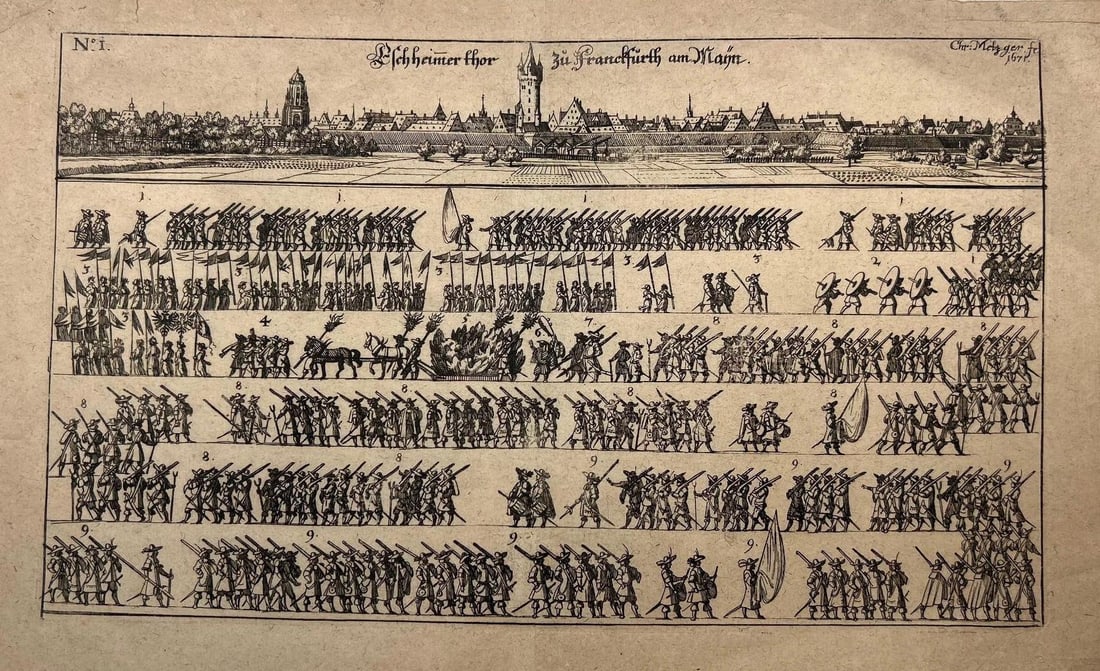 N.º 1.
Eschheimer thor zu Franckfurth am Maÿn.
Chr: Metzger fe
1671.
1. 1 1 1
3 3 3 3 3 2. 1
3 4 5 6 7 8 8 8
8 8 8 8
8. 8 9 9. 9
9 9. 9 9.